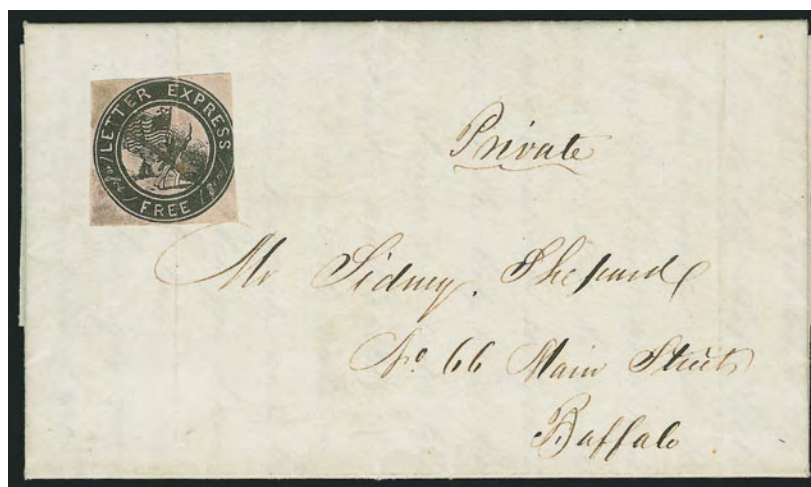 LETTER EXPRESS
FREE
Private
Mr Sidney. Shepard
No 66 Main Street
Buffalo